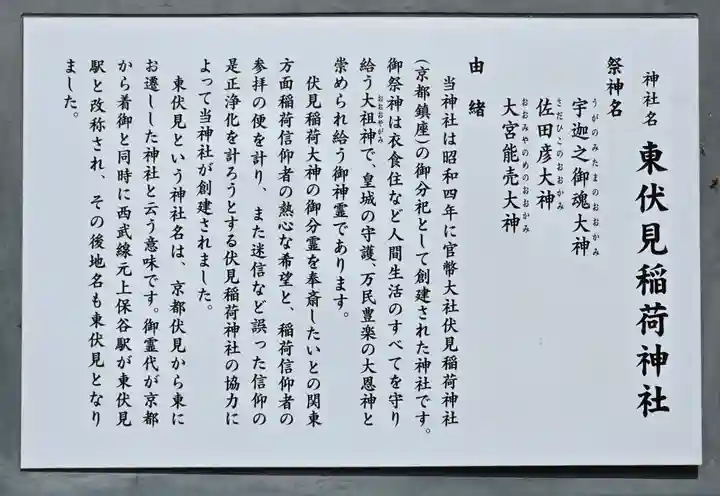 神社名 東伏見稲荷神社
祭神名
うがのみたまのおおかみ
宇迦之御魂大神
さだひこのおおかみ
佐田彦大神
おおみやのめのおおかみ
大宮能売大神
由緒
当神社は昭和四年に官幣大社伏見稲荷神社
(京都鎮座)の御分祀として創建された神社です。
御祭神は衣食住など人間生活のすべてを守り
おおおやがみ
給う大祖神で、皇城の守護、万民豊楽の大恩神と
崇められ給う御神霊であります。
伏見稲荷大神の御分霊を奉斎したいとの関東
方面稲荷信仰者の熱心な希望と、稲荷信仰者の
参拝の便を計り、また迷信など誤った信仰の
是正浄化を計ろうとする伏見稲荷神社の協力に
よって当神社が創建されました。
東伏見という神社名は、京都伏見から東に
お遷しした神社と云う意味です。御霊代が京都
から着御と同時に西武線元上保谷駅が東伏見
駅と改称され、その後地名も東伏見となり
ました。